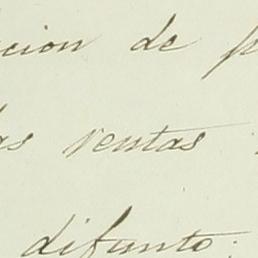 cion de p
as ventas
difunto.